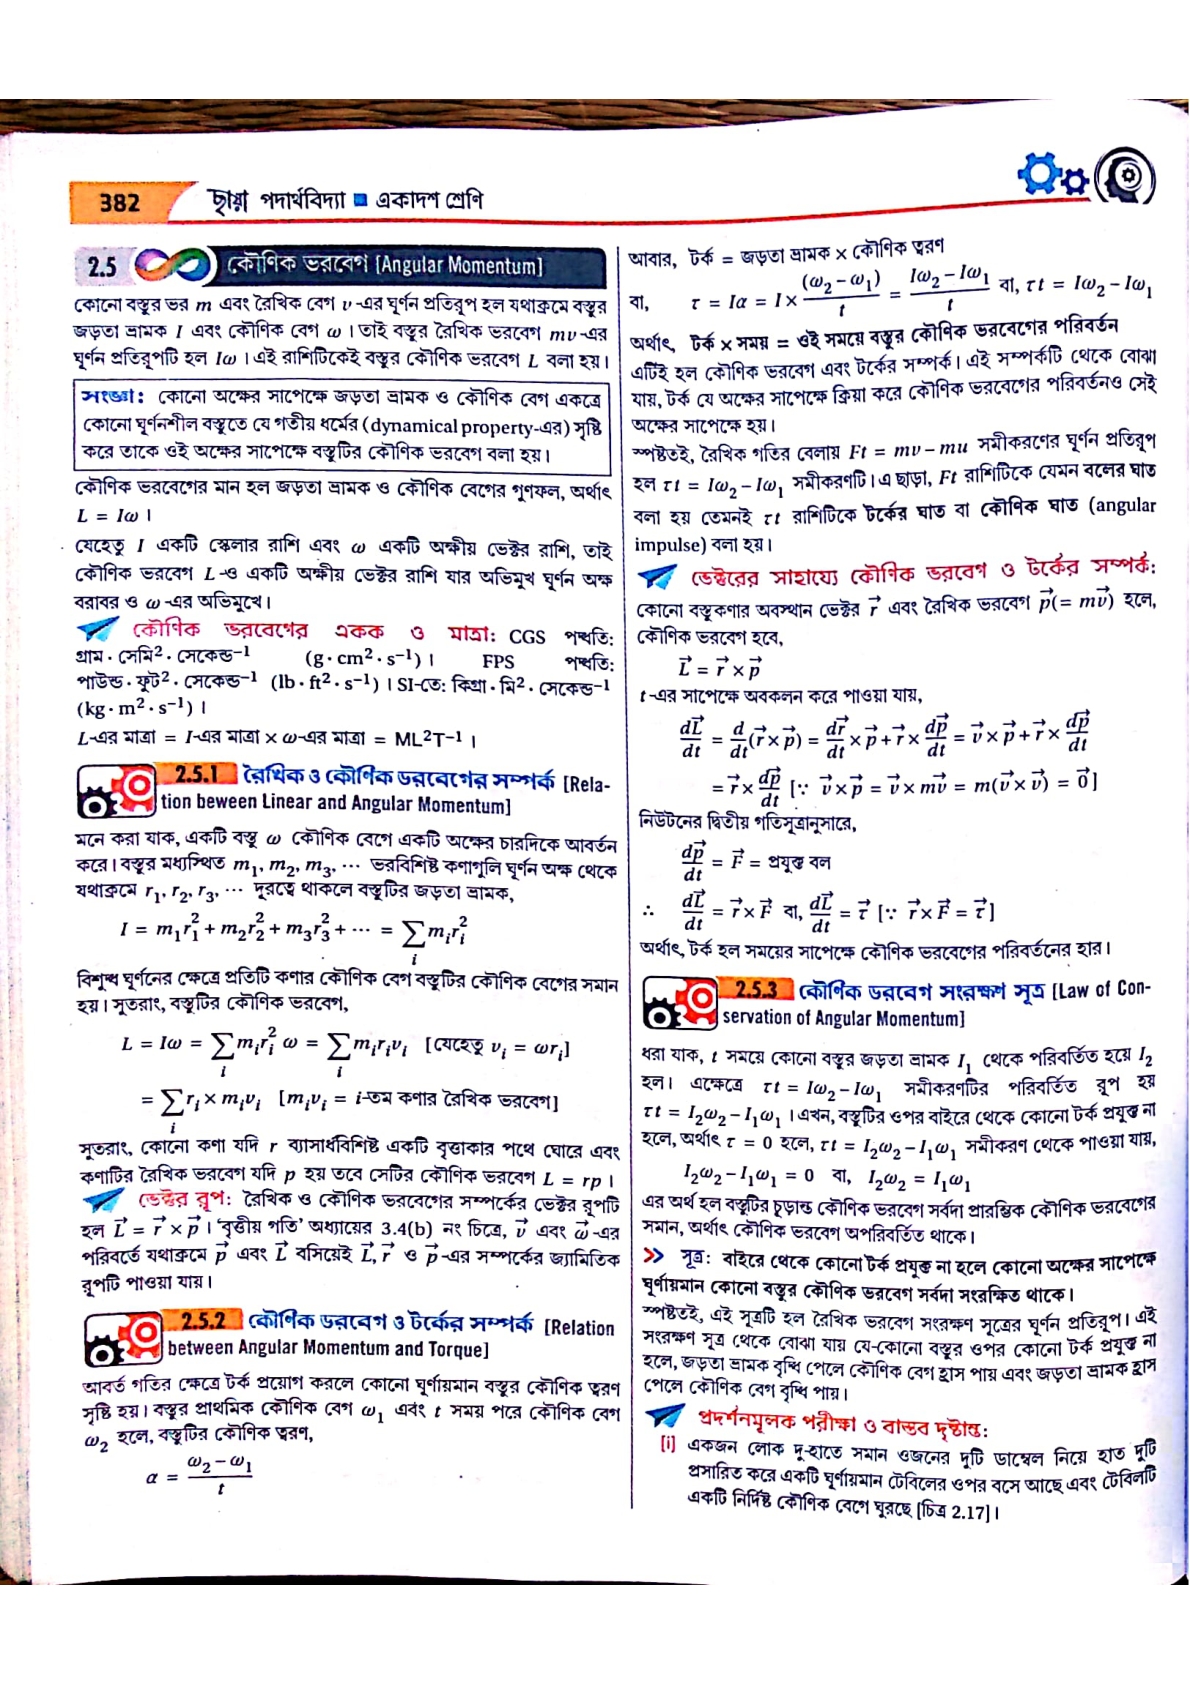 382 ছায়া পদার্থবিদ্যা ■ একাদশ শ্রেণি
2.5 কৌণিক ভরবেগ [Angular Momentum]
কোনো বস্তুর ভর m এবং রৈখিক বেগ v-এর ঘূর্ণন প্রতিরূপ হল যথাক্রমে বস্তুর
জড়তা ভ্রামক I এবং কৌণিক বেগ ω। তাই বস্তুর রৈখিক ভরবেগ mv-এর
ঘূর্ণন প্রতিরূপটি হল Iω। এই রাশিটিকেই বস্তুর কৌণিক ভরবেগ L বলা হয়।
সংজ্ঞা: কোনো অক্ষের সাপেক্ষে জড়তা ভ্রামক ও কৌণিক বেগ একত্রে
কোনো ঘূর্ণনশীল বস্তুতে যে গতীয় ধর্মের (dynamical property-এর) সৃষ্টি
করে তাকে ওই অক্ষের সাপেক্ষে বস্তুটির কৌণিক ভরবেগ বলা হয়।
কৌণিক ভরবেগের মান হল জড়তা ভ্রামক ও কৌণিক বেগের গুণফল, অর্থাৎ
L = Iω।
যেহেতু I একটি স্কেলার রাশি এবং ω একটি অক্ষীয় ভেক্টর রাশি, তাই
কৌণিক ভরবেগ L-ও একটি অক্ষীয় ভেক্টর রাশি যার অভিমুখ ঘূর্ণন অক্ষ
বরাবর ও ω-এর অভিমুখে।
কৌণিক ভরবেগের একক ও মাত্রা: CGS পদ্ধতি:
গ্রাম · সেমি² · সেকেন্ড⁻¹ (g · cm² · s⁻¹)। FPS পদ্ধতি:
পাউন্ড · ফুট² · সেকেন্ড⁻¹ (lb · ft² · s⁻¹)। SI-তে: কিগ্রা · মি² · সেকেন্ড⁻¹
(kg · m² · s⁻¹)।
L-এর মাত্রা = I-এর মাত্রা × ω-এর মাত্রা = ML²T⁻¹।
2.5.1 রৈখিক ও কৌণিক ভরবেগের সম্পর্ক [Rela-
tion beween Linear and Angular Momentum]
মনে করা যাক, একটি বস্তু ω কৌণিক বেগে একটি অক্ষের চারদিকে আবর্তন
করে। বস্তুর মধ্যস্থিত m₁, m₂, m₃, ⋯ ভরবিশিষ্ট কণাগুলি ঘূর্ণন অক্ষ থেকে
যথাক্রমে r₁, r₂, r₃, ⋯ দূরত্বে থাকলে বস্তুটির জড়তা ভ্রামক,
I = m₁r₁² + m₂r₂² + m₃r₃² + ⋯ = ∑ᵢ mᵢrᵢ²
বিশুদ্ধ ঘূর্ণনের ক্ষেত্রে প্রতিটি কণার কৌণিক বেগ বস্তুটির কৌণিক বেগের সমান
হয়। সুতরাং, বস্তুটির কৌণিক ভরবেগ,
L = Iω = ∑ᵢ mᵢrᵢ² ω = ∑ᵢ mᵢrᵢvᵢ [যেহেতু vᵢ = ωrᵢ]
= ∑ᵢ rᵢ × mᵢvᵢ [mᵢvᵢ = i-তম কণার রৈখিক ভরবেগ]
সুতরাং, কোনো কণা যদি r ব্যাসার্ধবিশিষ্ট একটি বৃত্তাকার পথে ঘোরে এবং
কণাটির রৈখিক ভরবেগ যদি p হয় তবে সেটির কৌণিক ভরবেগ L = rp।
ভেক্টর রূপ: রৈখিক ও কৌণিক ভরবেগের সম্পর্কের ভেক্টর রূপটি
হল L⃗ = r⃗ × p⃗। ‘বৃত্তীয় গতি’ অধ্যায়ের 3.4(b) নং চিত্রে, v⃗ এবং ω⃗-এর
পরিবর্তে যথাক্রমে p⃗ এবং L⃗ বসিয়েই L⃗, r⃗ ও p⃗-এর সম্পর্কের জ্যামিতিক
রূপটি পাওয়া যায়।
2.5.2 কৌণিক ভরবেগ ও টর্কের সম্পর্ক [Relation
between Angular Momentum and Torque]
আবর্ত গতির ক্ষেত্রে টর্ক প্রয়োগ করলে কোনো ঘূর্ণায়মান বস্তুর কৌণিক ত্বরণ
সৃষ্টি হয়। বস্তুর প্রাথমিক কৌণিক বেগ ω₁ এবং t সময় পরে কৌণিক বেগ
ω₂ হলে, বস্তুটির কৌণিক ত্বরণ,
α = (ω₂ − ω₁)/t
আবার, টর্ক = জড়তা ভ্রামক × কৌণিক ত্বরণ
বা, τ = Iα = I × (ω₂ − ω₁)/t = (Iω₂ − Iω₁)/t বা, τt = Iω₂ − Iω₁
অর্থাৎ, টর্ক × সময় = ওই সময়ে বস্তুর কৌণিক ভরবেগের পরিবর্তন
এটিই হল কৌণিক ভরবেগ এবং টর্কের সম্পর্ক। এই সম্পর্কটি থেকে বোঝা
যায়, টর্ক যে অক্ষের সাপেক্ষে ক্রিয়া করে কৌণিক ভরবেগের পরিবর্তনও সেই
অক্ষের সাপেক্ষে হয়।
স্পষ্টতই, রৈখিক গতির বেলায় Ft = mv − mu সমীকরণের ঘূর্ণন প্রতিরূপ
হল τt = Iω₂ − Iω₁ সমীকরণটি। এ ছাড়া, Ft রাশিটিকে যেমন বলের ঘাত
বলা হয় তেমনই τt রাশিটিকে টর্কের ঘাত বা কৌণিক ঘাত (angular
impulse) বলা হয়।
ভেক্টরের সাহায্যে কৌণিক ভরবেগ ও টর্কের সম্পর্ক:
কোনো বস্তুকণার অবস্থান ভেক্টর r⃗ এবং রৈখিক ভরবেগ p⃗(= mv⃗) হলে,
কৌণিক ভরবেগ হবে,
L⃗ = r⃗ × p⃗
t-এর সাপেক্ষে অবকলন করে পাওয়া যায়,
dL⃗/dt = d/dt(r⃗ × p⃗) = dr⃗/dt × p⃗ + r⃗ × dp⃗/dt = v⃗ × p⃗ + r⃗ × dp⃗/dt
= r⃗ × dp⃗/dt [∵ v⃗ × p⃗ = v⃗ × mv⃗ = m(v⃗ × v⃗) = 0⃗]
নিউটনের দ্বিতীয় গতিসূত্রানুসারে,
dp⃗/dt = F⃗ = প্রযুক্ত বল
∴ dL⃗/dt = r⃗ × F⃗ বা, dL⃗/dt = τ⃗ [∵ r⃗ × F⃗ = τ⃗]
অর্থাৎ, টর্ক হল সময়ের সাপেক্ষে কৌণিক ভরবেগের পরিবর্তনের হার।
2.5.3 কৌণিক ভরবেগ সংরক্ষণ সূত্র [Law of Con-
servation of Angular Momentum]
ধরা যাক, t সময়ে কোনো বস্তুর জড়তা ভ্রামক I₁ থেকে পরিবর্তিত হয়ে I₂
হল। এক্ষেত্রে τt = Iω₂ − Iω₁ সমীকরণটির পরিবর্তিত রূপ হয়
τt = I₂ω₂ − I₁ω₁। এখন, বস্তুটির ওপর বাইরে থেকে কোনো টর্ক প্রযুক্ত না
হলে, অর্থাৎ τ = 0 হলে, τt = I₂ω₂ − I₁ω₁ সমীকরণ থেকে পাওয়া যায়,
I₂ω₂ − I₁ω₁ = 0 বা, I₂ω₂ = I₁ω₁
এর অর্থ হল বস্তুটির চূড়ান্ত কৌণিক ভরবেগ সর্বদা প্রারম্ভিক কৌণিক ভরবেগের
সমান, অর্থাৎ কৌণিক ভরবেগ অপরিবর্তিত থাকে।
>> সূত্র: বাইরে থেকে কোনো টর্ক প্রযুক্ত না হলে কোনো অক্ষের সাপেক্ষে
ঘূর্ণায়মান কোনো বস্তুর কৌণিক ভরবেগ সর্বদা সংরক্ষিত থাকে।
স্পষ্টতই, এই সূত্রটি হল রৈখিক ভরবেগ সংরক্ষণ সূত্রের ঘূর্ণন প্রতিরূপ। এই
সংরক্ষণ সূত্র থেকে বোঝা যায় যে-কোনো বস্তুর ওপর কোনো টর্ক প্রযুক্ত না
হলে, জড়তা ভ্রামক বৃদ্ধি পেলে কৌণিক বেগ হ্রাস পায় এবং জড়তা ভ্রামক হ্রাস
পেলে কৌণিক বেগ বৃদ্ধি পায়।
প্রদর্শনমূলক পরীক্ষা ও বাস্তব দৃষ্টান্ত:
[i] একজন লোক দু-হাতে সমান ওজনের দুটি ডাম্বেল নিয়ে হাত দুটি
প্রসারিত করে একটি ঘূর্ণায়মান টেবিলের ওপর বসে আছে এবং টেবিলটি
একটি নির্দিষ্ট কৌণিক বেগে ঘুরছে [চিত্র 2.17]।